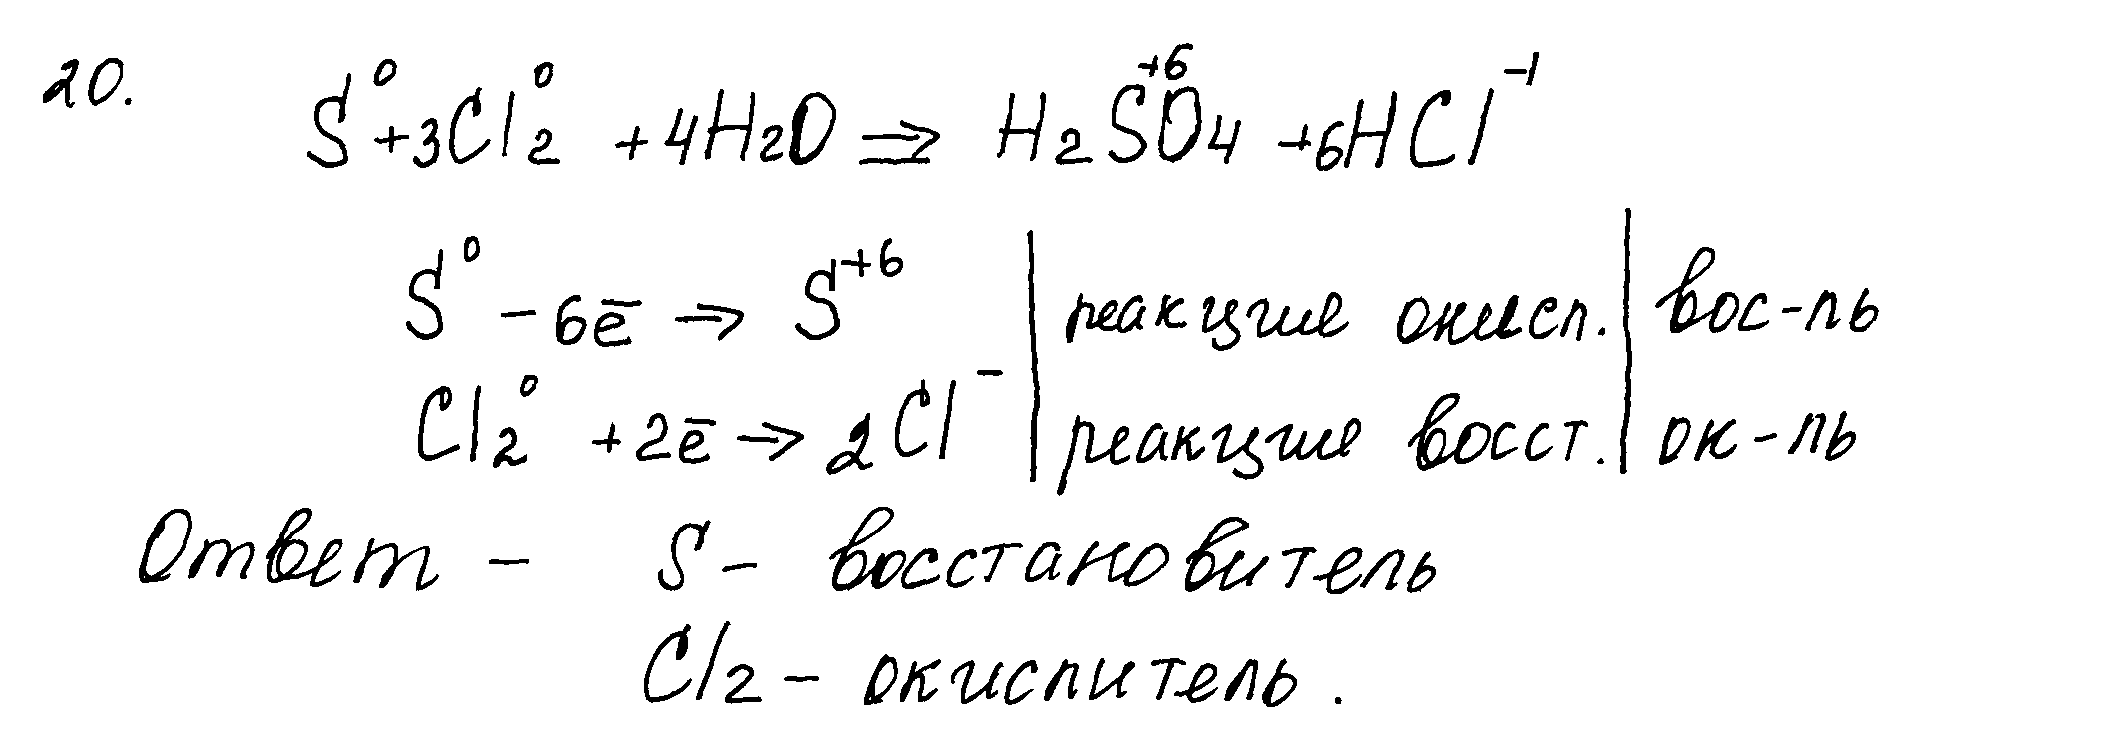 20. S⁰ + 3Cl₂⁰ + 4H₂O ⇒ H₂S⁺⁶O₄ + 6HCl⁻¹
S⁰ − 6ē ⇒ S⁺⁶ | реакция окисл. | вос-ль
Cl₂⁰ + 2ē → 2Cl⁻ | реакция восст. | ок-ль
Ответ − S − восстановитель
Cl₂ − окислитель.